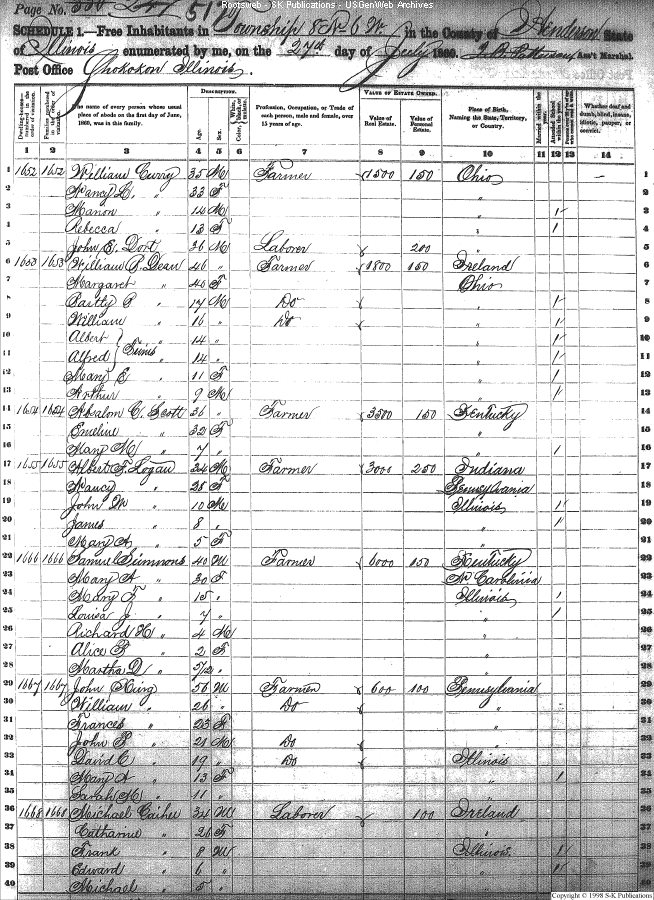 Rootsweb - SK Publications - USGenWeb Archives
Page No. 519
SCHEDULE 1.—Free Inhabitants in Township 8 N 6 W in the County of Henderson State
of Illinois enumerated by me, on the 27th day of July 1860. Ass't Marshal.
Post Office Shokokon Illinois.
DESCRIPTION. VALUE OF ESTATE OWNED.
The name of every person whose usual place of abode on the first day of June, 1860, was in this family. Age. Sex. Profession, Occupation, or Trade of each person, male and female, over 15 years of age. Value of Real Estate. Value of Personal Estate. Place of Birth, Naming the State, Territory, or Country. Whether deaf and dumb, blind, insane, idiotic, pauper, or convict.
1 2 3 4 5 6 7 8 9 10 11 12 13 14
1 1652 1652 William Curry 35 M Farmer 1500 150 Ohio — 1
2 Nancy L. " 33 F " 2
3 Manon " 14 M " / 3
4 Rebecca " 13 F " / 4
5 John E. Dort 36 M Laborer 200 " 5
6 1653 1653 William P. Dean 46 " Farmer 1800 150 Ireland 6
7 Margaret " 40 F Ohio 7
8 17 M Do " / 8
9 William " 16 " Do " / 9
10 Albert } Twins 14 " " / 10
11 Alfred } " 14 " " / 11
12 Mary E " 11 F " / 12
13 Arthur " 9 M " / 13
14 1654 1654 Absalom C. Scott 36 " Farmer 3500 150 Kentucky 14
15 Emeline " 32 F " 15
16 Mary M " 7 " " / 16
17 1655 1655 Albert F. Logan 34 M Farmer 3000 250 Indiana 17
18 Nancy " 28 F Pennsylvania 18
19 John W " 10 M Illinois / 19
20 James " 8 " " / 20
21 Mary A " 5 F " 21
22 1666 1666 Samuel Simmons 40 M Farmer 6000 150 Kentucky 22
23 Mary A " 30 F N. Carolina 23
24 Mary F " 15 " Illinois / 24
25 Louisa J. " 7 " " / 25
26 Richard H " 4 M " 26
27 Alice F " 2 F " 27
28 Martha D " 5/12 " " 28
29 1667 1667 John King 56 M Farmer 600 100 Pennsylvania 29
30 William " 26 " Do " 30
31 Frances " 23 F " 31
32 John P " 21 M Do " 32
33 David C " 19 " Do Illinois 33
34 Mary A " 13 F " / 34
35 Sarah M " 11 " " 35
36 1668 1668 Michael 34 M Laborer 100 Ireland 36
37 Catharine " 26 F " 37
38 Frank " 8 M Illinois. / 38
39 Edward " 6 " " / 39
40 Michael " 5 " " 40
Copyright © 1998 S-K Publications